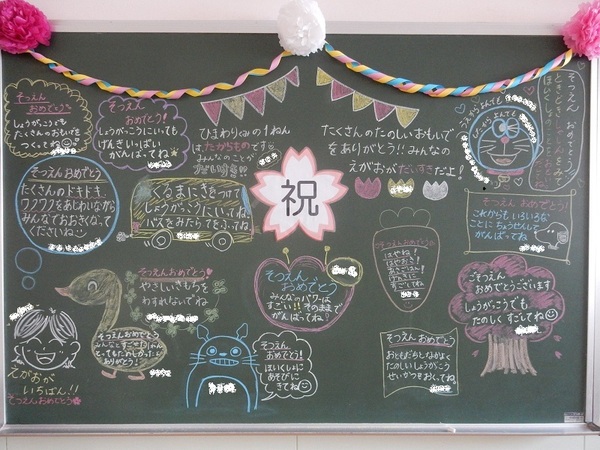 そつえん
おめでとう
しょうがっこうでも
たくさんのおもいでを
つくってね
そつえん
おめでとう!
しょうがっこうにいっても
げんきいっぱい
がんばってね
ひまわりぐみの1ねん
は たからものです
みんなのことが
だいすき!!
たくさんのたのしいおもいで
をありがとう!!みんなの
えがおがだいすきだよ!
そつえん おめでとう
祝
そつえん おめでとう
たくさんのドキドキ、
ワクワクをあじわいながら
みんなでおおきくなって
くださいね
くるまにきをつけて
しょうがっこうにいってね。
バスをみたらてをふってね
そつえん おめでとう!
これからも いろいろな
ことに ちょうせんして
がんばってね
そつえんおめでとう
やさしいきもちを
わすれないでね
そつえん
おめでとう
みんなのパワーは
すごい!! そのままで
がんばってね!
そつえんおめでとう
はやね!
はやおき!
あさごはん!
げんきに
すごしてね
ごそつえん
おめでとうございます
しょうがっこうでも
たのしく すごしてね
そつえん おめでとう
とってもたのしかったよ
ありがとう!
そつえん、
おめでとう!
ほいくしょに
あそびに
きてね
そつえん おめでとう
おともだちとなかよく
たのしいしょうがっこう
せいかつをおくってね。
えがおが
いちばん!!
そつえんおめでとう